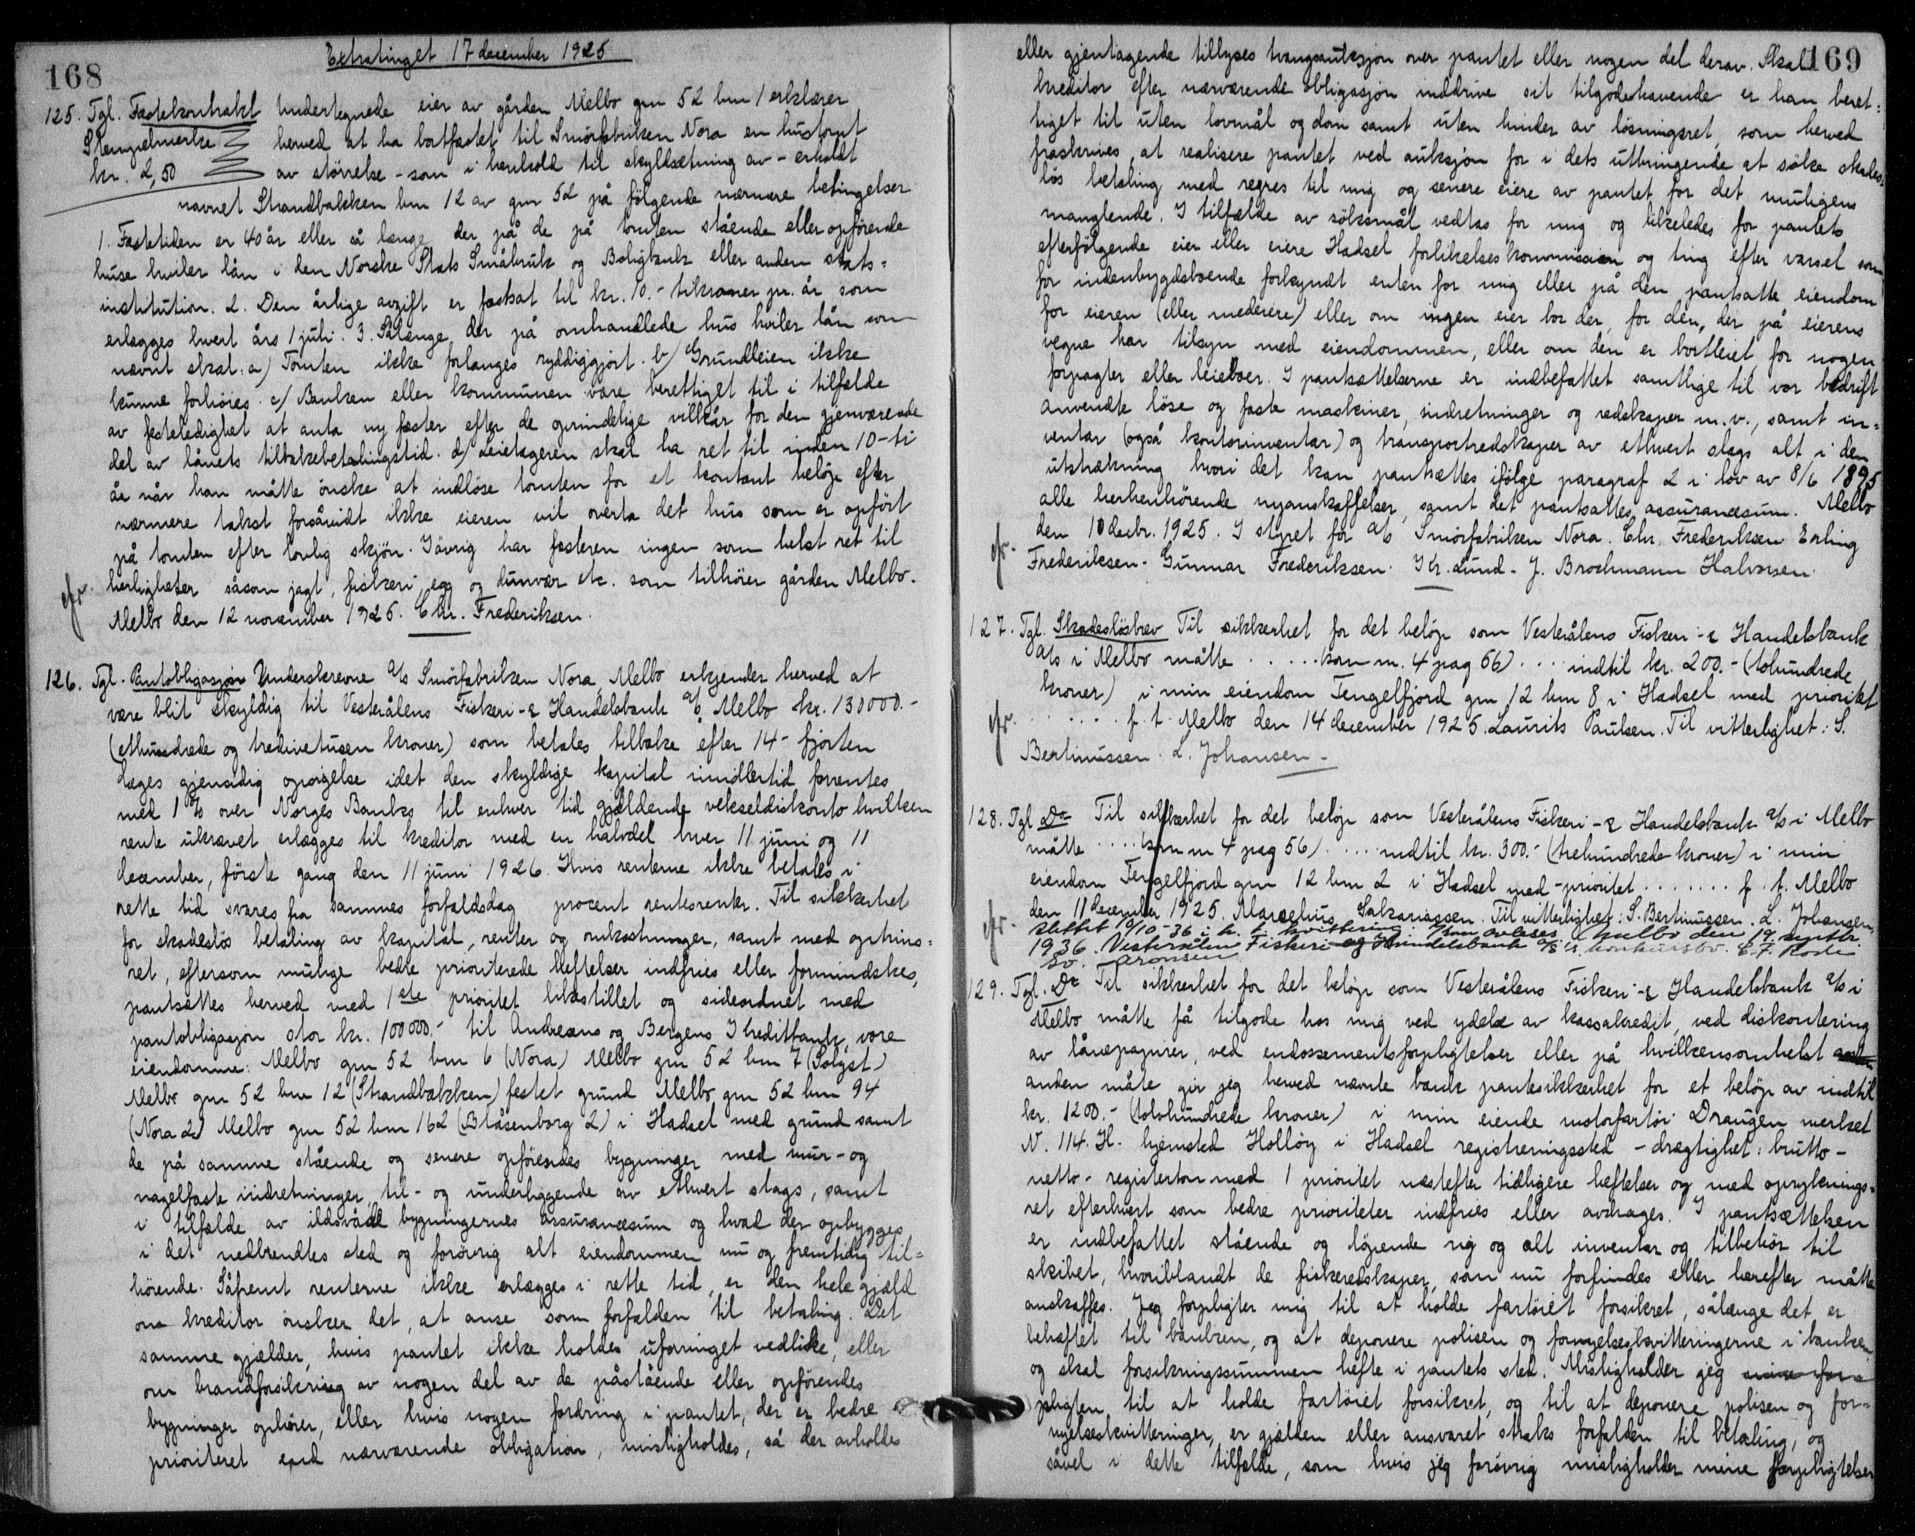 168
Extratinget 17 december 1925
125. Tgl. Festekontrakt Undertegnede eier av gården Melbo gnr 52 bnr 1 erklærer
Stempelmerke herved at ha bortfæstet til Smörfabriken Nora en hustomt
kr. 2,50 av störrelse - som i henhold til skyldsætning av - erholdt
navnet Strandbakken bnr 12 av gnr 52 på følgende nærmere betingelser
1. Festetiden er 40 år eller så længe der på de på tomten stående eller opförende
huse hviler lån i den Norske Stats Småbruk og Boligbank eller anden stats=
institution. 2. Den årlige avgift er fastsat til kr. 10.- tikroner pr. år som
erlægges hvert års 1 juli. 3. Sålænge der på omhandlede hus hviler lån som
nævnt skal: a) Tomten ikke forlanges ryddiggjort. b) Grundleien ikke
kunne forhöies. c) Banken eller kommunen være berettiget til i tilfælde
av festeledighet at anta ny fæster efter de oprindelige vilkår for den gjenværende
del av lånets tilbakebetalingstid. d) Leietageren skal ha ret til inden 10-ti
år når han måtte önske at indlöse tomten for et kontant belöp efter
nærmere takst forsåvidt ikke eieren vil overta det hus som er opfört
på tomten efter lovlig skjön. Iövrig har festeren ingen som helst ret til
herligheter såsom jagt, fiskeri egg og dunvær etc. som tilhörer gården Melbo.
Melbo den 12 november 1925. Chr. Frederiksen.
126. Tgl. Pantobligasjon Underskrevne A/S Smörfabriken Nora, Melbo erkjender herved at
være blit skyldig til Vesterålens Fiskeri- & Handelsbank A/S Melbo kr. 130000.-
(ethundrede og tredivetusen kroner) som betales tilbake efter 14- fjorten
dages gjensidig opsigelse idet den skyldige kapital imidlertid forrentes
med 1 % over Norges Banks til enhver tid gjældende vekseldiskonto hvilken
rente ukrævet erlægges til kreditor med en halvdel hver 11 juni og 11
december, förste gang den 11 juni 1926. Hvis renterne ikke betales i
rette tid svares fra sammes forfaldsdag procent rentesrente. Til sikkerhet
for skadeslös betaling av kapital, renter og omkostninger, samt med optrins=
ret, eftersom mulige bedre prioriterede heftelser indfries eller formindskes,
pantsættes herved med 1ste prioritet likestillet og sideordnet med
pantobligasjon stor kr. 100000.- til Andresens og Bergens Kreditbank, vore
eiendomme: Melbo gnr 52 bnr 6 (Nora) Melbo gnr 52 bnr 7 (Solgst)
Melbo gnr 52 bnr 12 (Strandbakken) festet grund Melbo gnr 52 bnr 94
(Nora 2) Melbo gnr 52 bnr 162 (Blåsenborg 2) i Hadsel med grund samt
de på samme stående og senere opförendes bygninger med mur- og
nagelfaste indretninger, til- og underliggende av ethvert slags, samt
i tilfælde av ildsvåde bygningernes assurancesum og hvad der opbygges
i det nedbrendtes sted og forövrig alt eiendommen nu og fremtidig til=
hörende. Såfremt renterne ikke erlægges i rette tid, er den hele gjæld
om kreditor önsker det, at anse som forfalden til betaling. Det
samme gjælder, hvis pantet ikke holdes uforringet vedlike, eller
om brandforsikring av nogen del av de påstående eller opförendes
bygninger ophörer, eller hvis nogen fordring i pantet, der er bedre
prioriteret end nærværende obligation, misligholdes, så der avholdes
169
eller gjentagende tillyses tvangsauksjon over pantet eller nogen del derav. Skal
kreditor efter nærværende obligasjon inddrive sit tilgodehavende er han beret=
tiget til uten lovmål og dom samt uten hinder av lösningsret, som herved
fraskrives, at realisere pantet ved auksjon for i dets utbringende at söke skades=
lös betaling med regres til mig og senere eiere av pantet for det muligens
manglende. I tilfælde av söksmål vedtas for mig og likeledes for pantets
efterfölgende eier eller eiere Hadsel forlikelseskommission og ting efter varsel som
for indenbygdsboende forkyndt enten for mig eller på den pantsatte eiendom
for eieren (eller medeiere) eller om ingen eier bor der, for den, der på eierens
vegne har tilsyn med eiendommen, eller om den er bortleiet for nogen
forpagter eller leieboer. I pantsættelserne er indbefattet samtlige til vor bedrift
anvendte löse og faste maskiner, indretninger og redskaper m.v., samt in=
ventar (også kontorinventar) og transportredskaper av ethvert slags alt i den
utstrækning hvori det kan pantsættes ifölge paragraf 2 i lov av 8/6 1895
alle herhenhörende nyanskaffelser, samt det pantsattes assurancesum. Melbo
den 10 decbr. 1925. I styret for A/S Smörfabriken Nora. Chr. Frederiksen Erling
Frederiksen. Gunnar Frederiksen. Kr. Lund. J. Brochmann Halvorsen.
127. Tgl. Skadeslösbrev Til sikkerhet for det belöp som Vesterålens Fiskeri- & Handelsbank
A/S i Melbo måtte . . . . . (som nr. 4 pag 56) . . . . indtil kr. 200.- (tohundrede
kroner) i min eiendom Tengelfjord gnr 12 bnr 8 i Hadsel med prioritet
. . . . . . . f. t. Melbo den 14 december 1925. Laurits Paulsen. Til vitterlighet: S.
Bertinussen. L. Johansen.
128. Tgl Do Til sikkerhet for det belöp som Vesterålens Fiskeri- & Handelsbank A/S i Melbo
måtte . . . . . (som nr 4 pag 56) . . . . . indtil kr. 300.- (trehundrede kroner) i min
eiendom Tengelfjord gnr 12 bnr 2 i Hadsel med - prioritet . . . . . . . f. t. Melbo
den 11 december 1925. Sakariassen. Til vitterlighet: S. Bertinussen. L. Johansen.
slettet 10/10-36 i h. t. kvittering: Kan avleses Melbo den 19 septbr.
1936. Vesterålen Fiskeri- og Handelsbank A/S konkursbo.
Aronsen
129. Tgl. Do Til sikkerhet for det belöp som Vesterålens Fiskeri- & Handelsbank A/S i
Melbo måtte få tilgode hos mig ved ydelse av kassakredit, ved diskontering
av lånepapirer, ved endossementsforpligtelser eller på hvilkensomhelst
anden måte gir jeg herved nævnte bank pantesikkerhet for et belöp av indtil
kr. 1200.- (tolvhundrede kroner) i min eiende motorfartöi Draugen merket
N. 114. H. hjemsted Hollöy i Hadsel registreringssted - drægtighet: brutto -
netto - registerton med 1 prioritet næstefter tidligere heftelser og med opryknings=
ret efterhvert som bedre prioriteter indfries eller avdrages. I pantsættelsen
er indbefattet stående og löpende rig og alt inventar og tilbehör til
skibet, hvoriblandt de fiskeredskaper, som nu forfindes eller herefter måtte
anskaffes. Jeg forpligter mig til at holde fartöiet forsikret, sålænge det er
beheftet til banken, og at deponere polisen og fornyelseskvitteringerne i banken,
og skal forsikringssummen hefte i pantets sted. Misligholder jeg
pligten til at holde fartöiet forsikret, og til at deponere polisen og for=
nyelseskvitteringer, er gjælden eller ansvaret straks forfalden til betaling, og
såvel i dette tilfælde, som hvis jeg forövrig misligholder mine forpligtelser